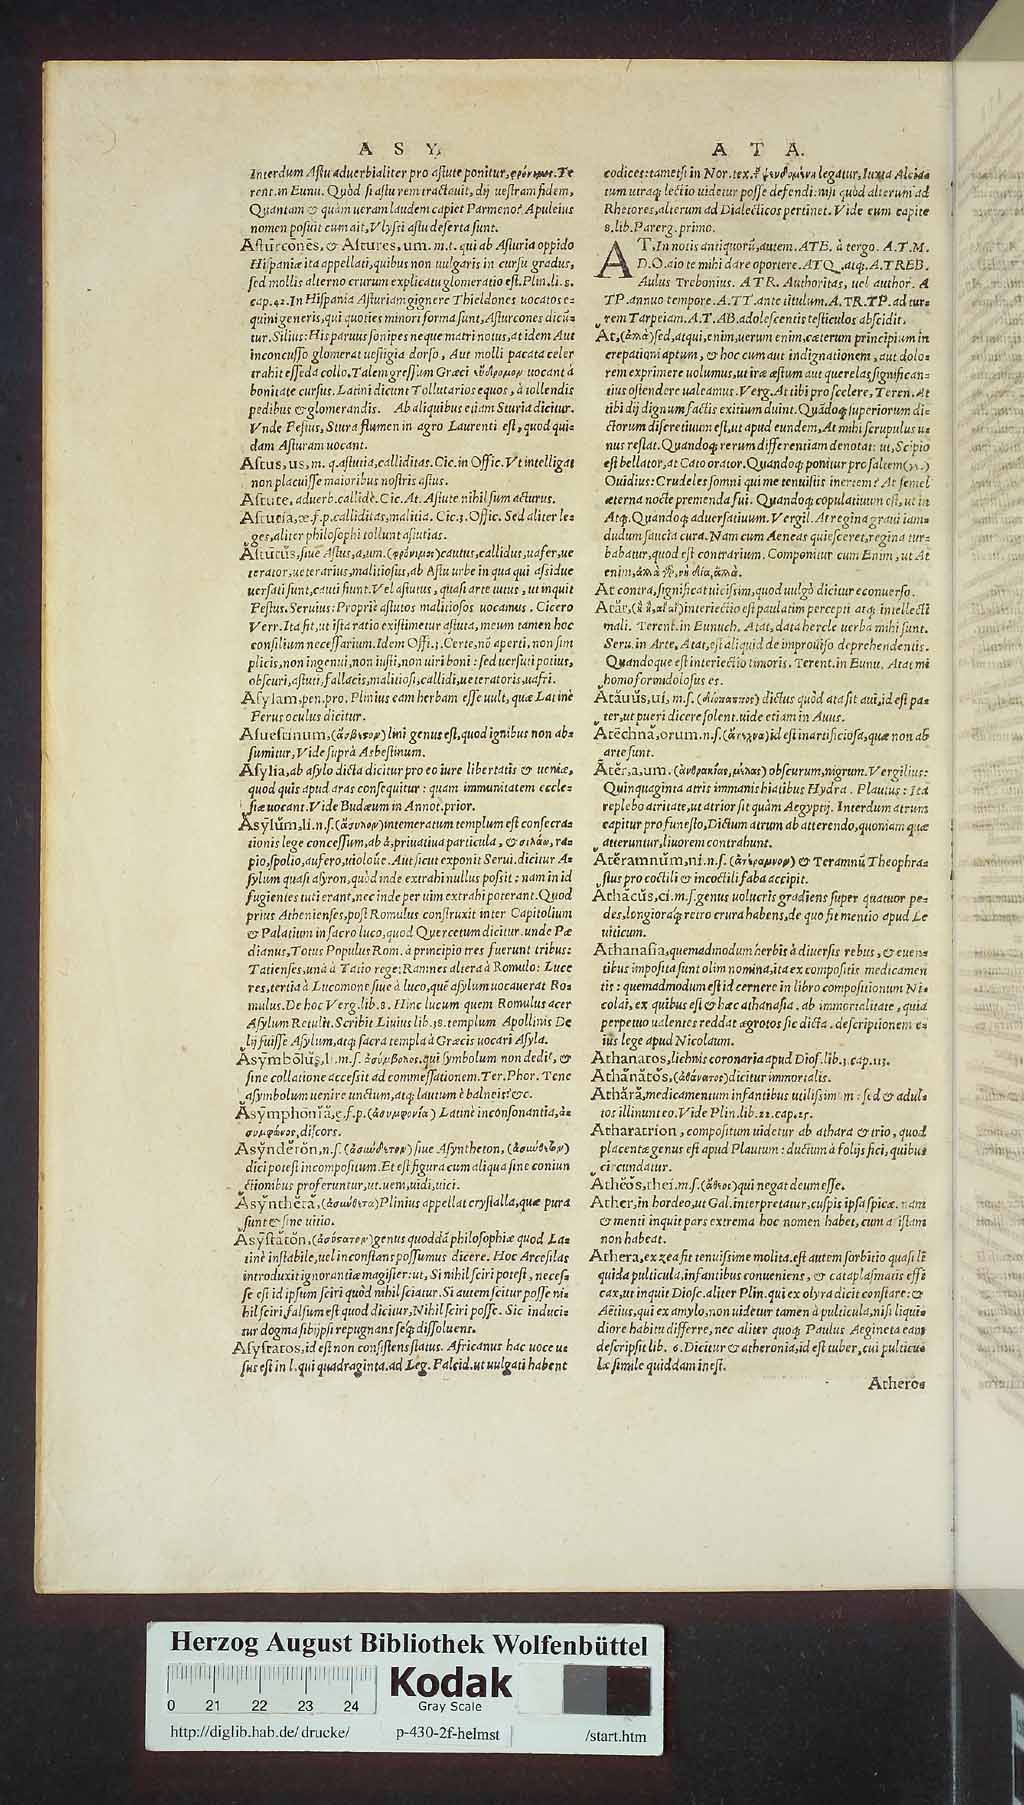 A S Y.
Interdum Astu aduerbialiter pro astute ponitur, φρόνιμος. Te
rent. in Eunu. Quòd si astu rem tractauit, dij uestram fidem,
Quantam & quàm ueram laudem capiet Parmeno? Apuleius
nomen posuit cum ait, Vlyssi astu deserta sunt.
Astŭrcones, & Astures, um. m. t. qui ab Asturia oppido
Hispaniæ ita appellati, quibus non uulgaris in cursu gradus,
sed mollis alterno crurum explicatu glomeratio est. Plin. li. 8.
cap. 42. In Hispania Asturiam gignere Thieldones uocatos e=
quini generis, qui quoties minori forma sunt, Asturcones dicũ=
tur. Silius: His paruus sonipes neque matri notus, at idem Aut
inconcusso glomerat uestigia dorso, Aut molli pacata celer
trahit esseda collo. Talem gressum Græci uocant à
bonitate cursus. Latini dicunt Tollutarios equos, à tollendis
pedibus & glomerandis. Ab aliquibus etiam Sturia dicitur.
Vnde Festus, Stura flumen in agro Laurenti est, quod qui=
dam Asturam uocant.
Astus, us, m. q. astutia, calliditas. Cic. in Offic. Vt intelligat
non placuisse maioribus nostris astus.
Astute, aduerb. callidè. Cic. At. Astute nihil sum acturus.
Astucia, æ. f. p. calliditas, malitia. Cic. 3. Offic. Sed aliter le=
ges, aliter philosophi tollunt astutias.
Āstūtŭs, siue Astus, a, um. (φρόνιμος) cautus, callidus, uafer, ue
terator, ueterarius, malitiosus, ab Astu urbe in qua qui assidue
uersati sunt, cauti fiunt. Vel astutus, quasi arte tutus, ut inquit
Festus. Seruius: Propriè astutos malitiosos uocamus. Cicero
Verr. Ita fit, ut ista ratio existimetur astuta, meum tamen hoc
consilium necessarium. Idem Offi. 3. Certe, nõ aperti, non sim
plicis, non ingenui, non iusti, non uiri boni: sed uersuti potius,
obscuri, astuti, fallacis, malitiosi, callidi, ueteratoris, uafri.
Asylam, pen. pro. Plinius eam herbam esse uult, quæ Latinè
Ferus oculus dicitur.
Asuestinum, (ἄσβεστον) lini genus est, quod ignibus non ab=
sumitur, Vide suprà Asbestinum.
Asylia, ab asylo dicta dicitur pro eo iure libertatis & ueniæ,
quod quis apud aras consequitur: quam immunitatem eccle=
siæ uocant. Vide Budæum in Annot. prior.
Āsȳlŭm, li. n. s. (ἄσυλον) intemeratum templum est consecra=
tionis lege concessum, ab ἀ, priuatiua particula, & συλάω, ra=
pio, spolio, aufero, uiolo ũe. Aut sicut exponit Serui. dicitur A=
sylum quasi asyron, quòd inde extrahi nullus possit: nam in id
fugientes tuti erant, nec inde per uim extrahi poterant. Quod
prius Athenienses, post Romulus construxit inter Capitolium
& Palatium in sacro luco, quod Quercetum dicitur. unde Pæ
dianus, Totus Populus Rom. à principio tres fuerunt tribus:
Tatienses, unà à Tatio rege: Ramnes altera à Romulo: Luce
res, tertia à Lucomone siue à luco, quẽ asylum uocauerat Ro=
mulus. De hoc Verg. lib. 8. Hinc lucum quem Romulus acer
Asylum Retulit. Scribit Liuius lib. 38. templum Apollinis De
lij fuisse Asylum, atq; sacra templa à Græcis uocari Asyla.
Asȳmbŏlŭs, li. m. s. ἀσύμβολος. qui symbolum non dedit, &
sine collatione accessit ad commessationem. Ter. Phor. Tene
asymbolum uenire unctum, atq; lautum è balneis? &c.
Asȳmphōnĭă, æ. f. p. (ἀσυμφονία) Latinè inconsonantia, ἀ=
συμφώνος, discors.
Asȳndĕtŏn, n. s. (ἀσύνδετον) siue Asyntheton, (ἀσύνθετον)
dici potest incompositum. Et est figura cum aliqua sine coniun
ctionibus proferuntur, ut. ueni, uidi, uici.
Āsȳnthĕtă, (ἀσύνθετα) Plinius appellat crystalla, quæ pura
sunt & sine uitio.
Asȳstătŏn, (ἀσύστατον) genus quoddã philosophiæ quod La=
tinè instabile, uel inconstans possumus dicere. Hoc Arcesilas
introduxit ignorantiæ magister: ut, Si nihil sciri potest, neces=
se est id ipsum sciri quòd nihil sciatur. Si autem scitur posse ni=
hil sciri, falsum est quod dicitur, Nihil sciri posse. Sic induci=
tur dogma sibijpsi repugnans seq; dissoluens.
Asystatos, id est non consistens status. Africanus hac uoce u=
sus est in l. qui quadraginta. ad Leg. Falcid. ut uulgati habent
A T A.
codices: tametsi in Nor. tex. ψευδομένου legatur, Iuxta Alcia=
tum utraq; lectio uidetur posse defendi: nisi quòd alterum ad
Rhetores, alterum ad Dialecticos pertinet. Vide eum capite
8. lib. Parerg. primo.
AT, In notis antiquorũ, autem. ATE. à tergo. A. T. M.
D. O. aio te mihi dare oportere. ATQ. atq;. A. TREB.
Aulus Trebonius. ATR. Authoritas, uel author. A
TP. annuo tempore. A. TT. ante titulum. A. TR. TP. ad tur=
rem Tarpeiam. A. T. AB. adolescentis testiculos abscidit.
At, (ἀλλὰ) sed, atqui, enim, uerum enim, cæterum principium in
crepationi aptum, & hoc cum aut indignationem, aut dolo=
rem exprimere uolumus, ut iræ æstum aut querelas significan=
tius ostendere ualeamus. Verg. At tibi pro scelere, Teren. At
tibi dij dignum factis exitium duint. Quãdoq; superiorum di=
ctorum discretiuum est, ut apud eundem, At mihi scrupulus u=
nus restat. Quandoq; rerum differentiam denotat: ut, Scipio
est bellator, at Cato orator. Quandoq; ponitur pro saltem (γε.)
Ouidius: Crudeles somni qui me tenuistis inertem? At semel
æterna nocte premenda fui. Quandoq; copulatiuum est, ut in
Atq;. Quandoq; aduersatiuum. Vergil. At regina graui iam=
dudum saucia cura. Nam cum Aeneas quiesceret, regina tur=
babatur, quod est contrarium. Componitur cum Enim, ut At
enim, ἀλλὰ
At contra, significat uicissim, quod uulgò dicitur econuerso.
Atăt, interiectio est paulatim percepti atq; intellecti
mali. Terent. in Eunuch. Atat, data hercle uerba mihi sunt.
Seru. in Arte, Atat, est aliquid de improuiso deprehendentis.
Quandoque est interiectio timoris. Terent. in Eunu. Atat mi
homo formidolosus es.
Ătăuŭs, ui, m. s. dictus quòd ata sit aui, id est pa=
ter, ut pueri dicere solent. uide etiam in Auus.
Ātĕchnă, orum. n. s. (ἄτεχνα) id est inartificiosa, quæ non ab
arte sunt.
Ātĕr, a, um. (ἀνθρακίας, μέλας) obscurum, nigrum. Vergilius:
Quinquaginta atris immanis hiatibus Hydra. Plautus: Ita
replebo atritate, ut atrior sit quàm Aegyptij. Interdum atrum
capitur pro funesto, Dictum atrum ab atterendo, quoniam quæ
atteruntur, liuorem contrahunt.
Ātĕramnŭm, ni. n. s. (ἀτέραμνον) & Teramnũ Theophra=
stus pro coctili & incoctili faba accipit.
Ăthăcŭs, ci. m. s. genus uolucris gradiens super quatuor pe=
des, longioraq; retro crura habens, de quo fit mentio apud Le
uiticum.
Athanasia, quemadmodum herbis à diuersis rebus, & euen=
tibus imposita sunt olim nomina, ita ex compositis medicamen
tis: quemadmodum est id cernere in libro compositionum Ni=
colai, ex quibus est & hæc athanasia. ab immortalitate, quia
perpetuo ualentes reddat ægrotos sic dicta. descriptionem e=
ius lege apud Nicolaum.
Athanatos, lichnis coronaria apud Dios. lib. 3. cap. 113.
Athănătŏs, (ἀθάνατος) dicitur immortalis.
Athără, medicamentum infantibus utilissimum: sed & adul=
tos illinunt eo. Vide Plin. lib. 22. cap. 25.
Atharatrion, compositum uidetur ab athara & trio, quod
placentæ genus est apud Plautum: ductum à folijs fici, quibus
circundatur.
Āthĕŏs, thei. m. s. (ἄθεος) qui negat deum esse.
Ather, in hordeo, ut Gal. interpretatur, cuspis ipsa spicæ. nam
& menti inquit pars extrema hoc nomen habet, cum aristam
non habeat.
Athera, ex zea fit tenuissime molita. est autem sorbitio quasi li
quida pulticula, infantibus conueniens, & cataplasmatis effi
cax, ut inquit Diosc. aliter Plin. qui ex olyra dicit constare: &
Aëtius, qui ex amylo, non uidetur tamen à pulticula, nisi liqui=
diore habitu differre, nec aliter quoq; Paulus Aegineta eam
descripsit lib. 6. Dicitur & atheronia, id est tuber, cui pulticu
læ simile quiddam inest.
Atheros
Herzog August Bibliothek Wolfenbüttel
0 21 22 23 24
Kodak
Gray Scale
http://diglib.hab.de/drucke/ p-430-2f-helmst /start.htm